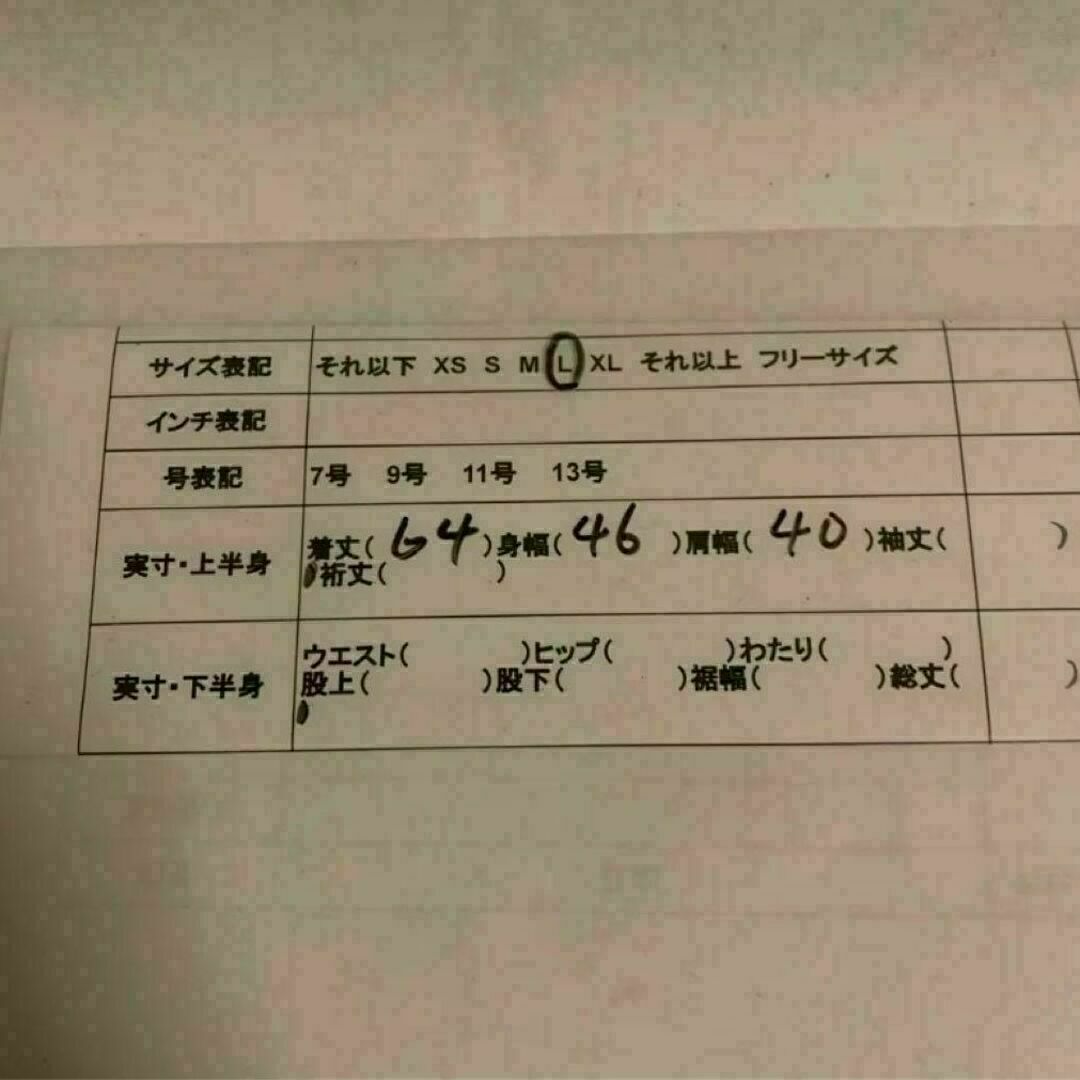 サイズ表記 それ以下 XS S M L XL それ以上 フリーサイズ
インチ表記
号表記 7号 9号 11号 13号
実寸・上半身 着丈( 64 )身幅( 46 )肩幅( 40 )袖丈( )
裄丈( )
実寸・下半身 ウエスト( )ヒップ( )わたり( )
股上( )股下( )裾幅( )総丈( )